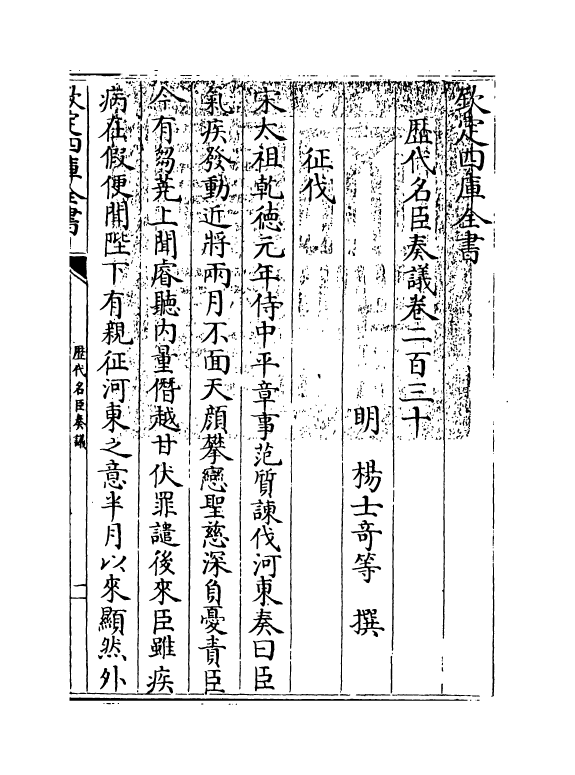 欽定四庫全書
歴代名臣奏議卷二百三十
明　楊士竒等　撰
征伐
宋太祖乾德元年侍中平章事范質諫伐河東奏曰臣
氣疾發動近將兩月不面天顔攀戀聖慈深負憂責臣
今有芻蕘上聞睿聽内量僭越甘伏罪譴後來臣雖疾
病在假便聞陛下有親征河東之意半月以來顯然外
欽定四庫全書
歴代名臣奏議
一